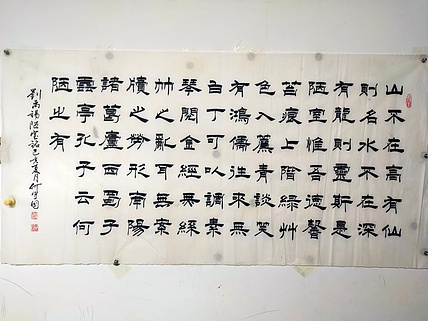 山不在高有仙
則名水不在深
有龍則靈斯是
陋室惟吾德馨
苔痕上階綠艸
色入簾青談笑
有鴻儒往來無
白丁可以調素
琴閱金經無絲
竹之亂耳無案
牘之勞形南陽
諸葛廬西蜀子
雲亭孔子云何
陋之有
劉禹錫陋室銘己亥夏月